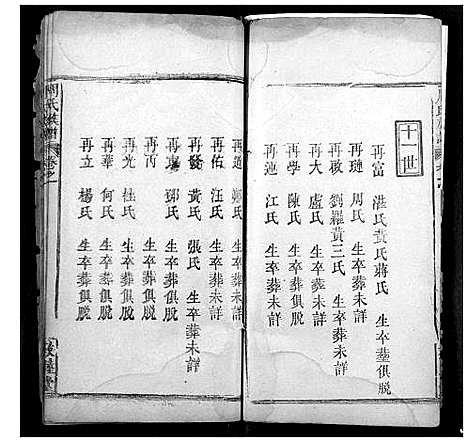 十一世
再富 湛氏黃氏蔣氏 生卒塟俱脫
再璉 周氏 生卒葬未詳
再啟 劉羅黃三氏 生卒葬未詳
再大 盧氏 生卒葬未詳
再學 陳氏 生卒葬俱脫
再蓮 江氏 生卒葬未詳
再道 鄭氏 生卒葬未詳
再佑 汪氏 生卒葬未詳
再發 黃氏 張氏 生卒葬未詳
再 鄧氏 生卒葬俱脫
再丙 生卒葬俱脫
再光 桂氏 生卒葬俱脫
再華 何氏 生卒葬俱脫
再立 楊氏 生卒葬俱脫
周氏族譜 卷之一
堂